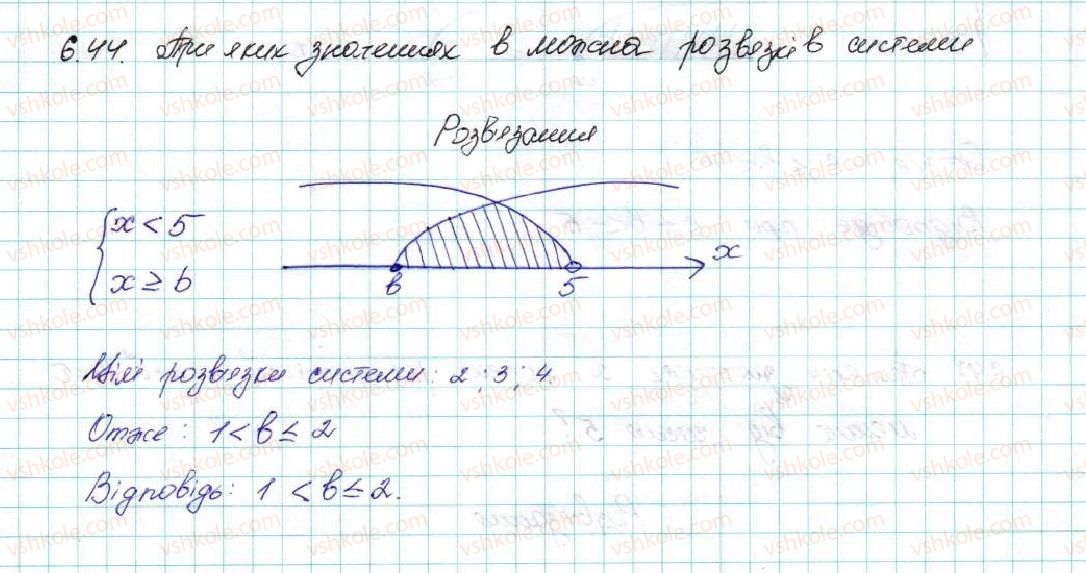 6.44. При яких значеннях в можна розвязків системи
Розвязання
{ x < 5
x ≥ b
в 5 x
Цілі розвязки системи: 2; 3; 4.
Отже: 1 < в ≤ 2
Відповідь: 1 < в ≤ 2.